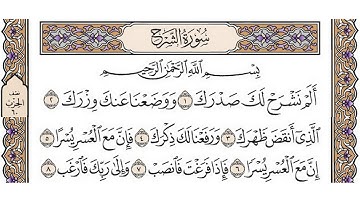 سُورَةُ الشَّرْحِ
بِسْمِ اللَّهِ الرَّحْمَٰنِ الرَّحِيمِ
أَلَمْ نَشْرَحْ لَكَ صَدْرَكَ ١ وَوَضَعْنَا عَنكَ وِزْرَكَ ٢
الَّذِي أَنقَضَ ظَهْرَكَ ٣ وَرَفَعْنَا لَكَ ذِكْرَكَ ٤ فَإِنَّ مَعَ الْعُسْرِ يُسْرًا ٥
إِنَّ مَعَ الْعُسْرِ يُسْرًا ٦ فَإِذَا فَرَغْتَ فَانصَبْ ٧ وَإِلَىٰ رَبِّكَ فَارْغَب ٨